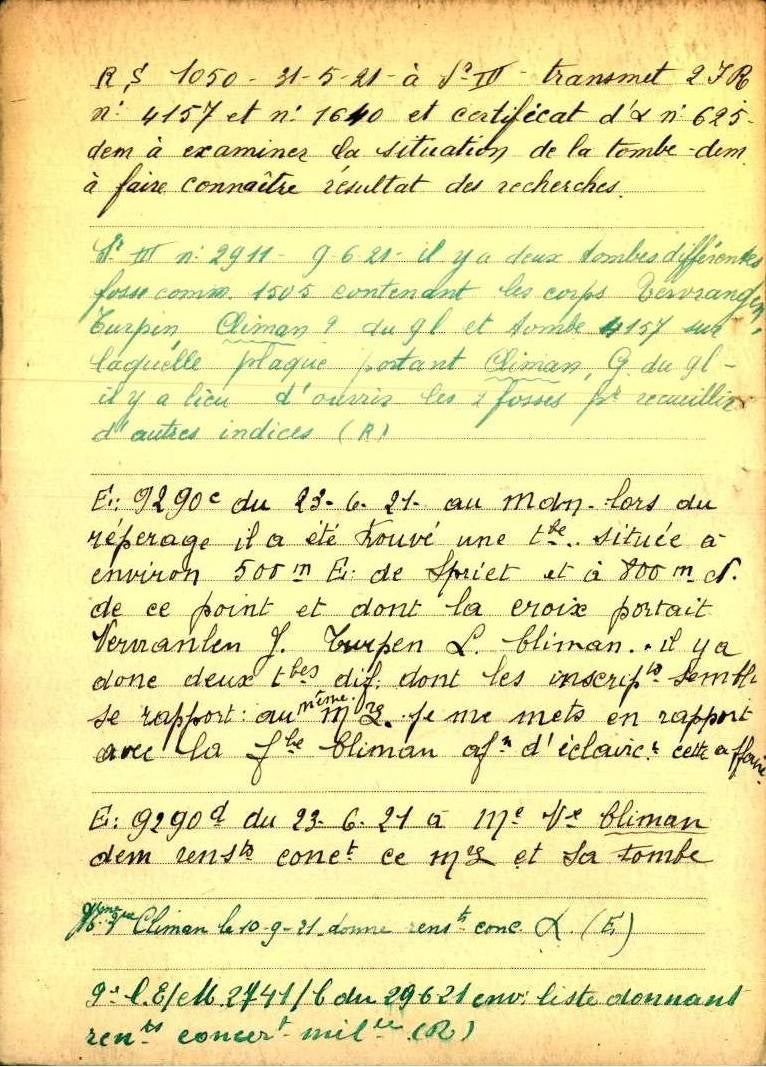 R S 1050 - 31-5-21 - à Sr III - transmet 2 J R
n: 4157 et n: 1640 et certificat d'α n: 625-
dem à examiner la situation de la tombe - dem
à faire connaître résultat des recherches.
Sr III n: 2911 - 9-6-21 - il y a deux tombes différentes
fosse comm. 1505 contenant les corps
Turpin Climan ? du gl et tombe 4157 sur
laquelle plaque portant Climan, G du gl -
il y a lieu d'ouvrir les 2 fosses pr recueillir
d'autres indices (R)
E: 9290c du 23-6-21- au mdn - lors du
répérage il a été trouvé une tbe .. située à
environ 500 m E: de Spriet et à 800 m N.
de ce point et dont la croix portait
Vervranlen J. Turpen L. Climan .. il y a
donc deux tbes dif: dont les inscripts sembl
se rapport: au même m
. je me mets en rapport
avec la flle Climan afn d'éclairc.r cette affaire
E: 9290d du 23-6-21 à Me Vve Climan
dem rensts conct ce m et sa tombe
Climan le 10-9-21 donne rensts conc. α. (E)
l. E/eM. 2741/6 du 29 6 21 env: liste donnant
rensts concert milre (R)